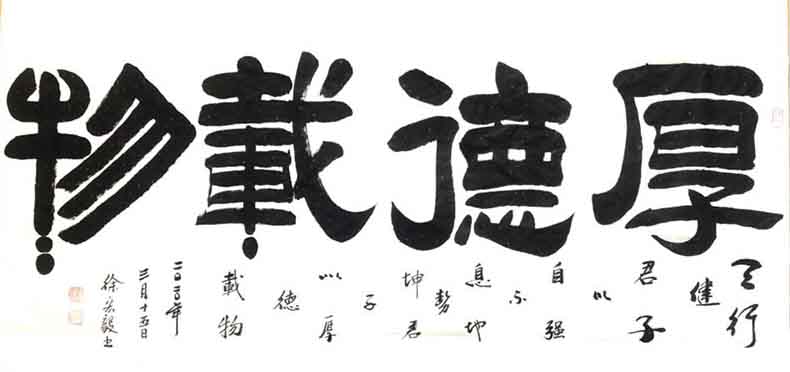 厚德載物
天行
健
君子
以
自强
不
息地
勢
坤君
子
以厚
德
載物
二〇二〇年
三月十五日
徐宏毅书